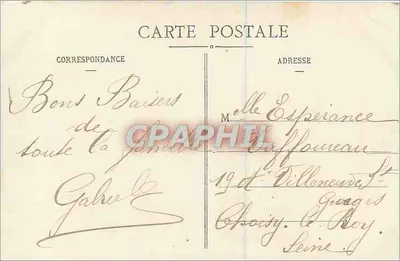 CARTE POSTALE
CORRESPONDANCE
Bons Baisers
de
toute la famille
ADRESSE
Mlle Espérance
Gaffoureau
19 A Villeneuve St
Georges
Choisy-le-Roy
Seine
CPAPHIL